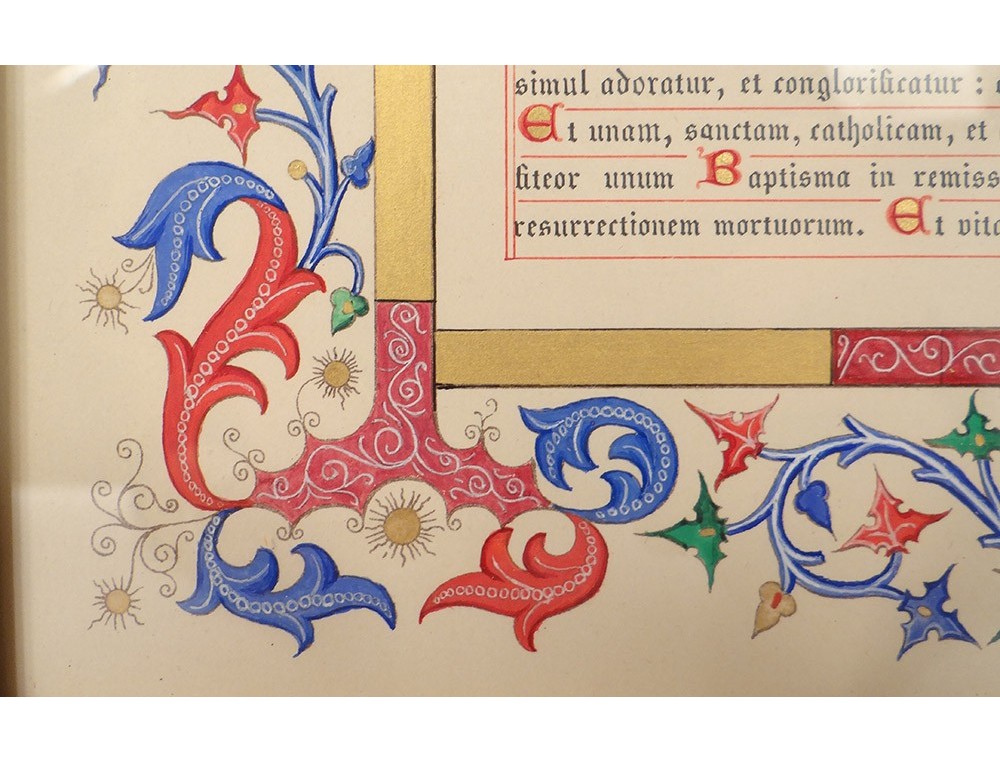 simul adoratur, et conglorificatur :
Et unam, sanctam, catholicam, et
fiteor unum Baptisma in remiss
resurrectionem mortuorum. Et vita